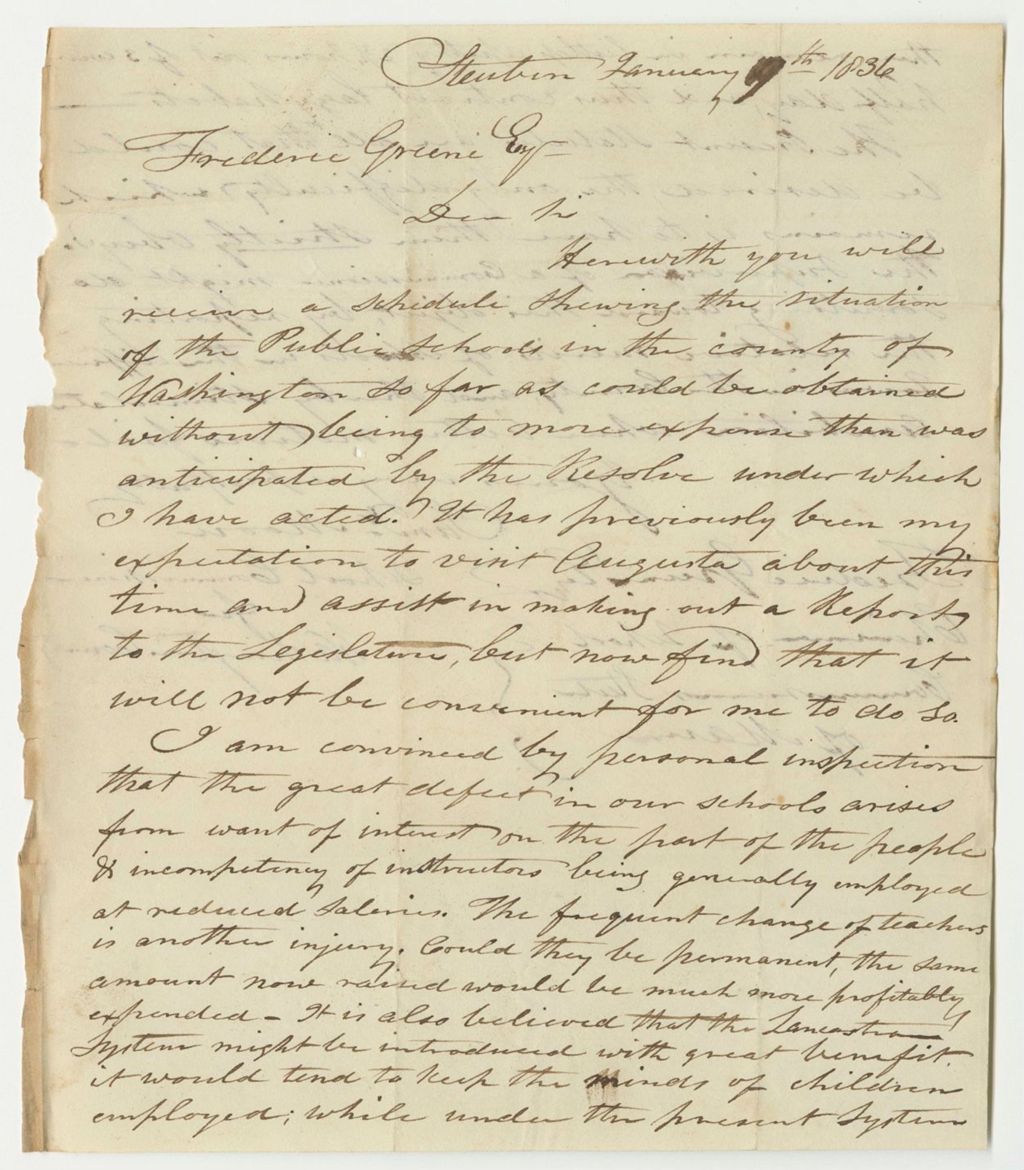 Steuben January 9th 1836
Frederic Greene Esq
Dear Sir
Herewith you will
receive a schedule shewing the situation
of the Public Schools in the county of
Washington so far as could be obtained
without being to more expense than was
anticipated by the Resolve under which
I have acted. It has previously been my
expectation to visit Augusta about this
time and assist in making out a Report
to the Legislature, but now find that it
will not be convenient for me to do so.
I am convinced by personal inspection
that the great defect in our schools arises
from want of interest on the part of the people
& incompetency of instructors being generally employed
at reduced Saleries. The frequent change of teachers
is another injury. Could they be permanent, the same
amount now raised would be much more profitably
expended - It is also believed that the Lancastrian
System might be introduced with great benefit.
it would tend to keep the minds of children
employed; while under the present System